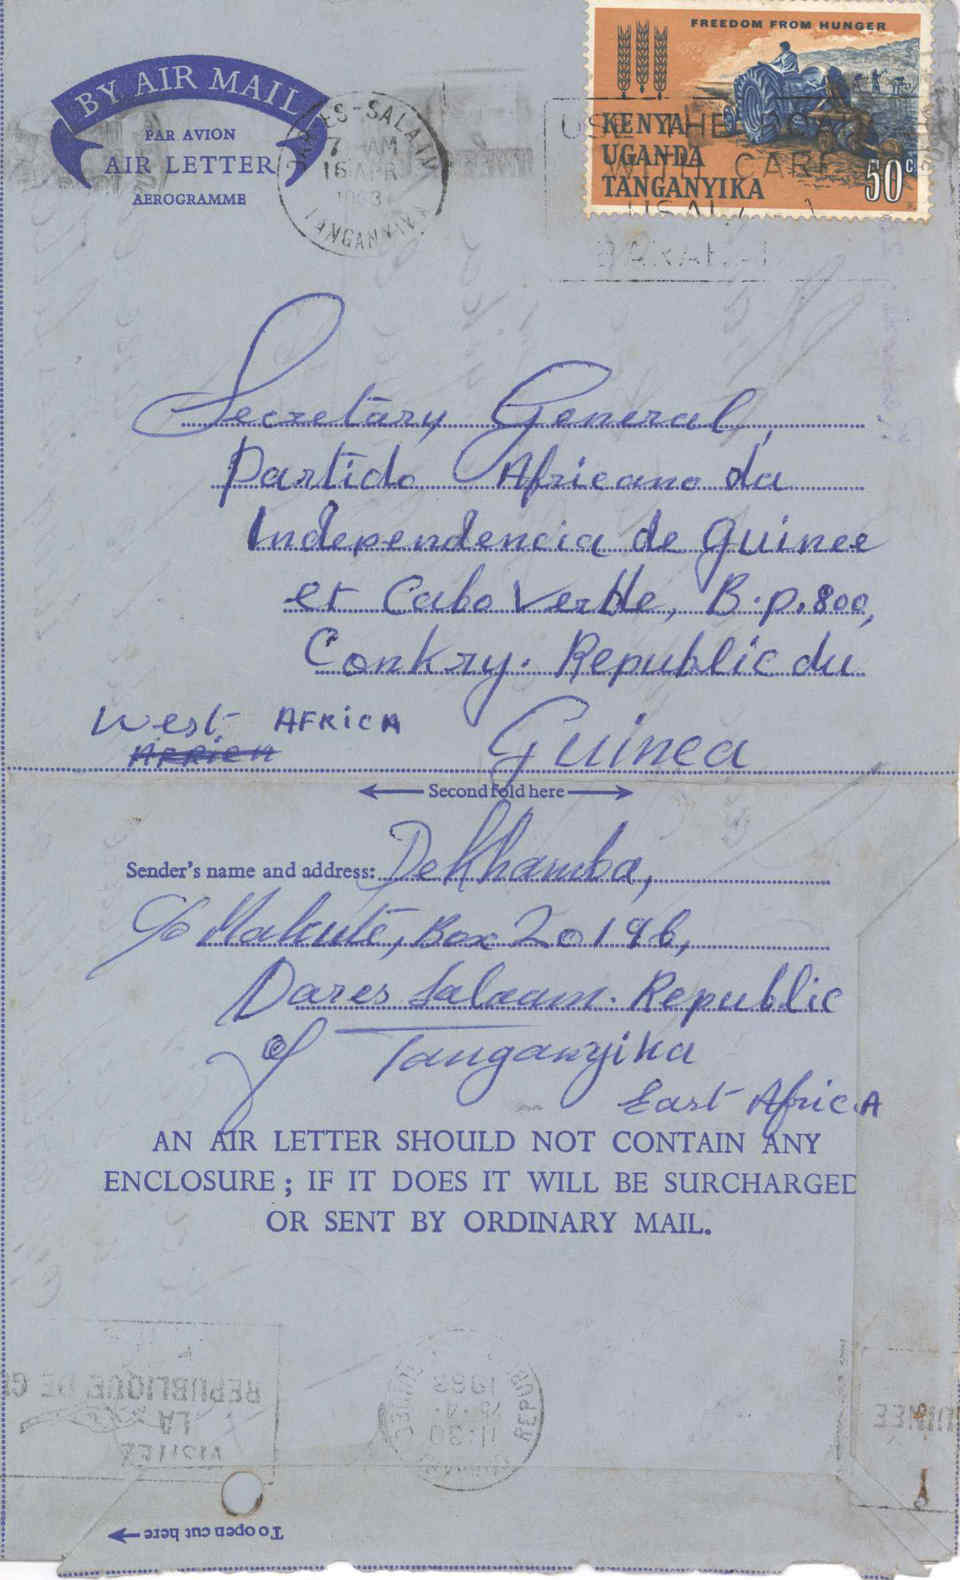 BY AIR MAIL
PAR AVION
AIR LETTER
AEROGRAMME
DAR-ES-SALAAM
7 AM
16 APR
1963
TANGANYIKA
FREEDOM FROM HUNGER
KENYA
UGANDA
TANGANYIKA
50c
USE THE
WITH CARE
Secretary General,
Partido Africano da
Independencia de Guinee
et Cabo Verde, B.P. 800,
Conkry. Republic du
Guinea
West AFRICA
AFRICA
Second fold here
Sender's name and address: Dekhamba,
c/o Makute, Box 20196,
Dares Salaam. Republic
of Tanganyika
East Africa
AN AIR LETTER SHOULD NOT CONTAIN ANY
ENCLOSURE ; IF IT DOES IT WILL BE SURCHARGED
OR SENT BY ORDINARY MAIL.
VISITEZ
LA
REPUBLIQUE DE GUINEE
11:30
1963
To open cut here